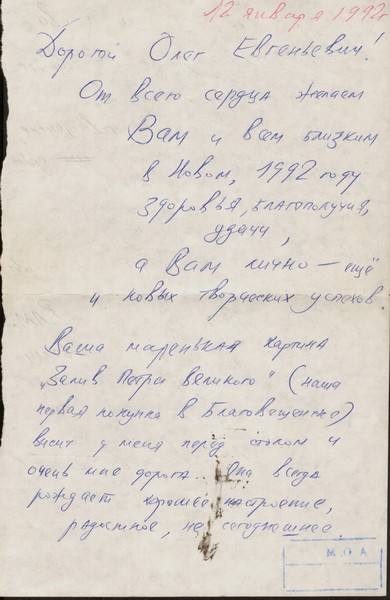 12 января 1992
Дорогой Олег Евгеньевич!
От всего сердца желаем
Вам и всем близким
в Новом, 1992 году
здоровья, благополучия,
удачи,
а Вам лично — ещё
и новых творческих успехов.
Ваша маленькая картина
„Залив Петра Великого“ (наша
первая покупка в Благовещенске)
висит у меня перед столом и
очень мне дорога. Она всегда
рождает хорошее настроение,
радостное, не сегодняшнее.
М.О.А.